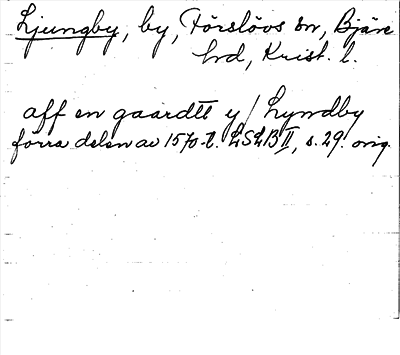 Ljungby, by, Förslövs sn, Bjäre
hrd, Krist. l.
aff en gaardtt y / Lyngby
förra delen av 1570-t. LSLB II, s. 29. orig.